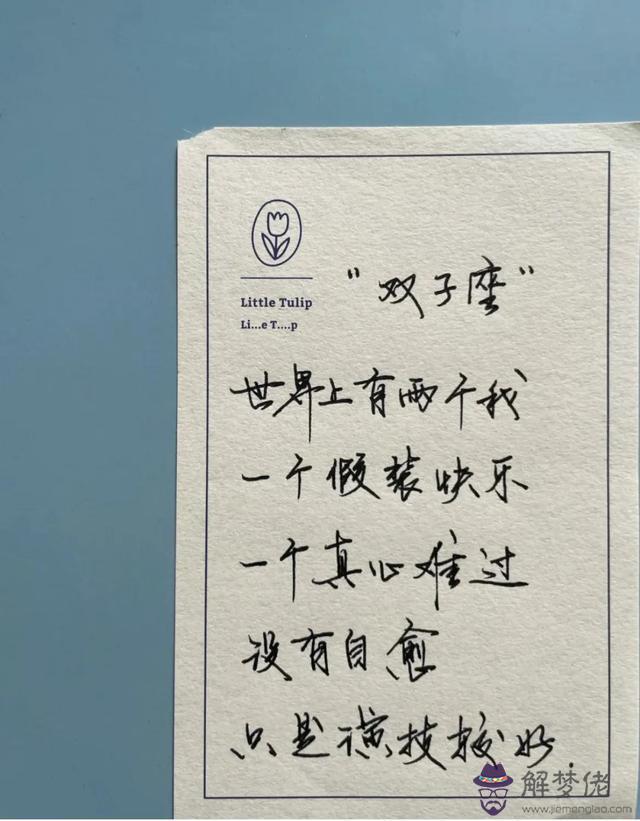 Little Tulip
Li...e T....p
"双子座"
世界上有两个我
一个假装快乐
一个真心难过
没有自愈
只是演技较好.
解梦佬
www.jiemenglao.com